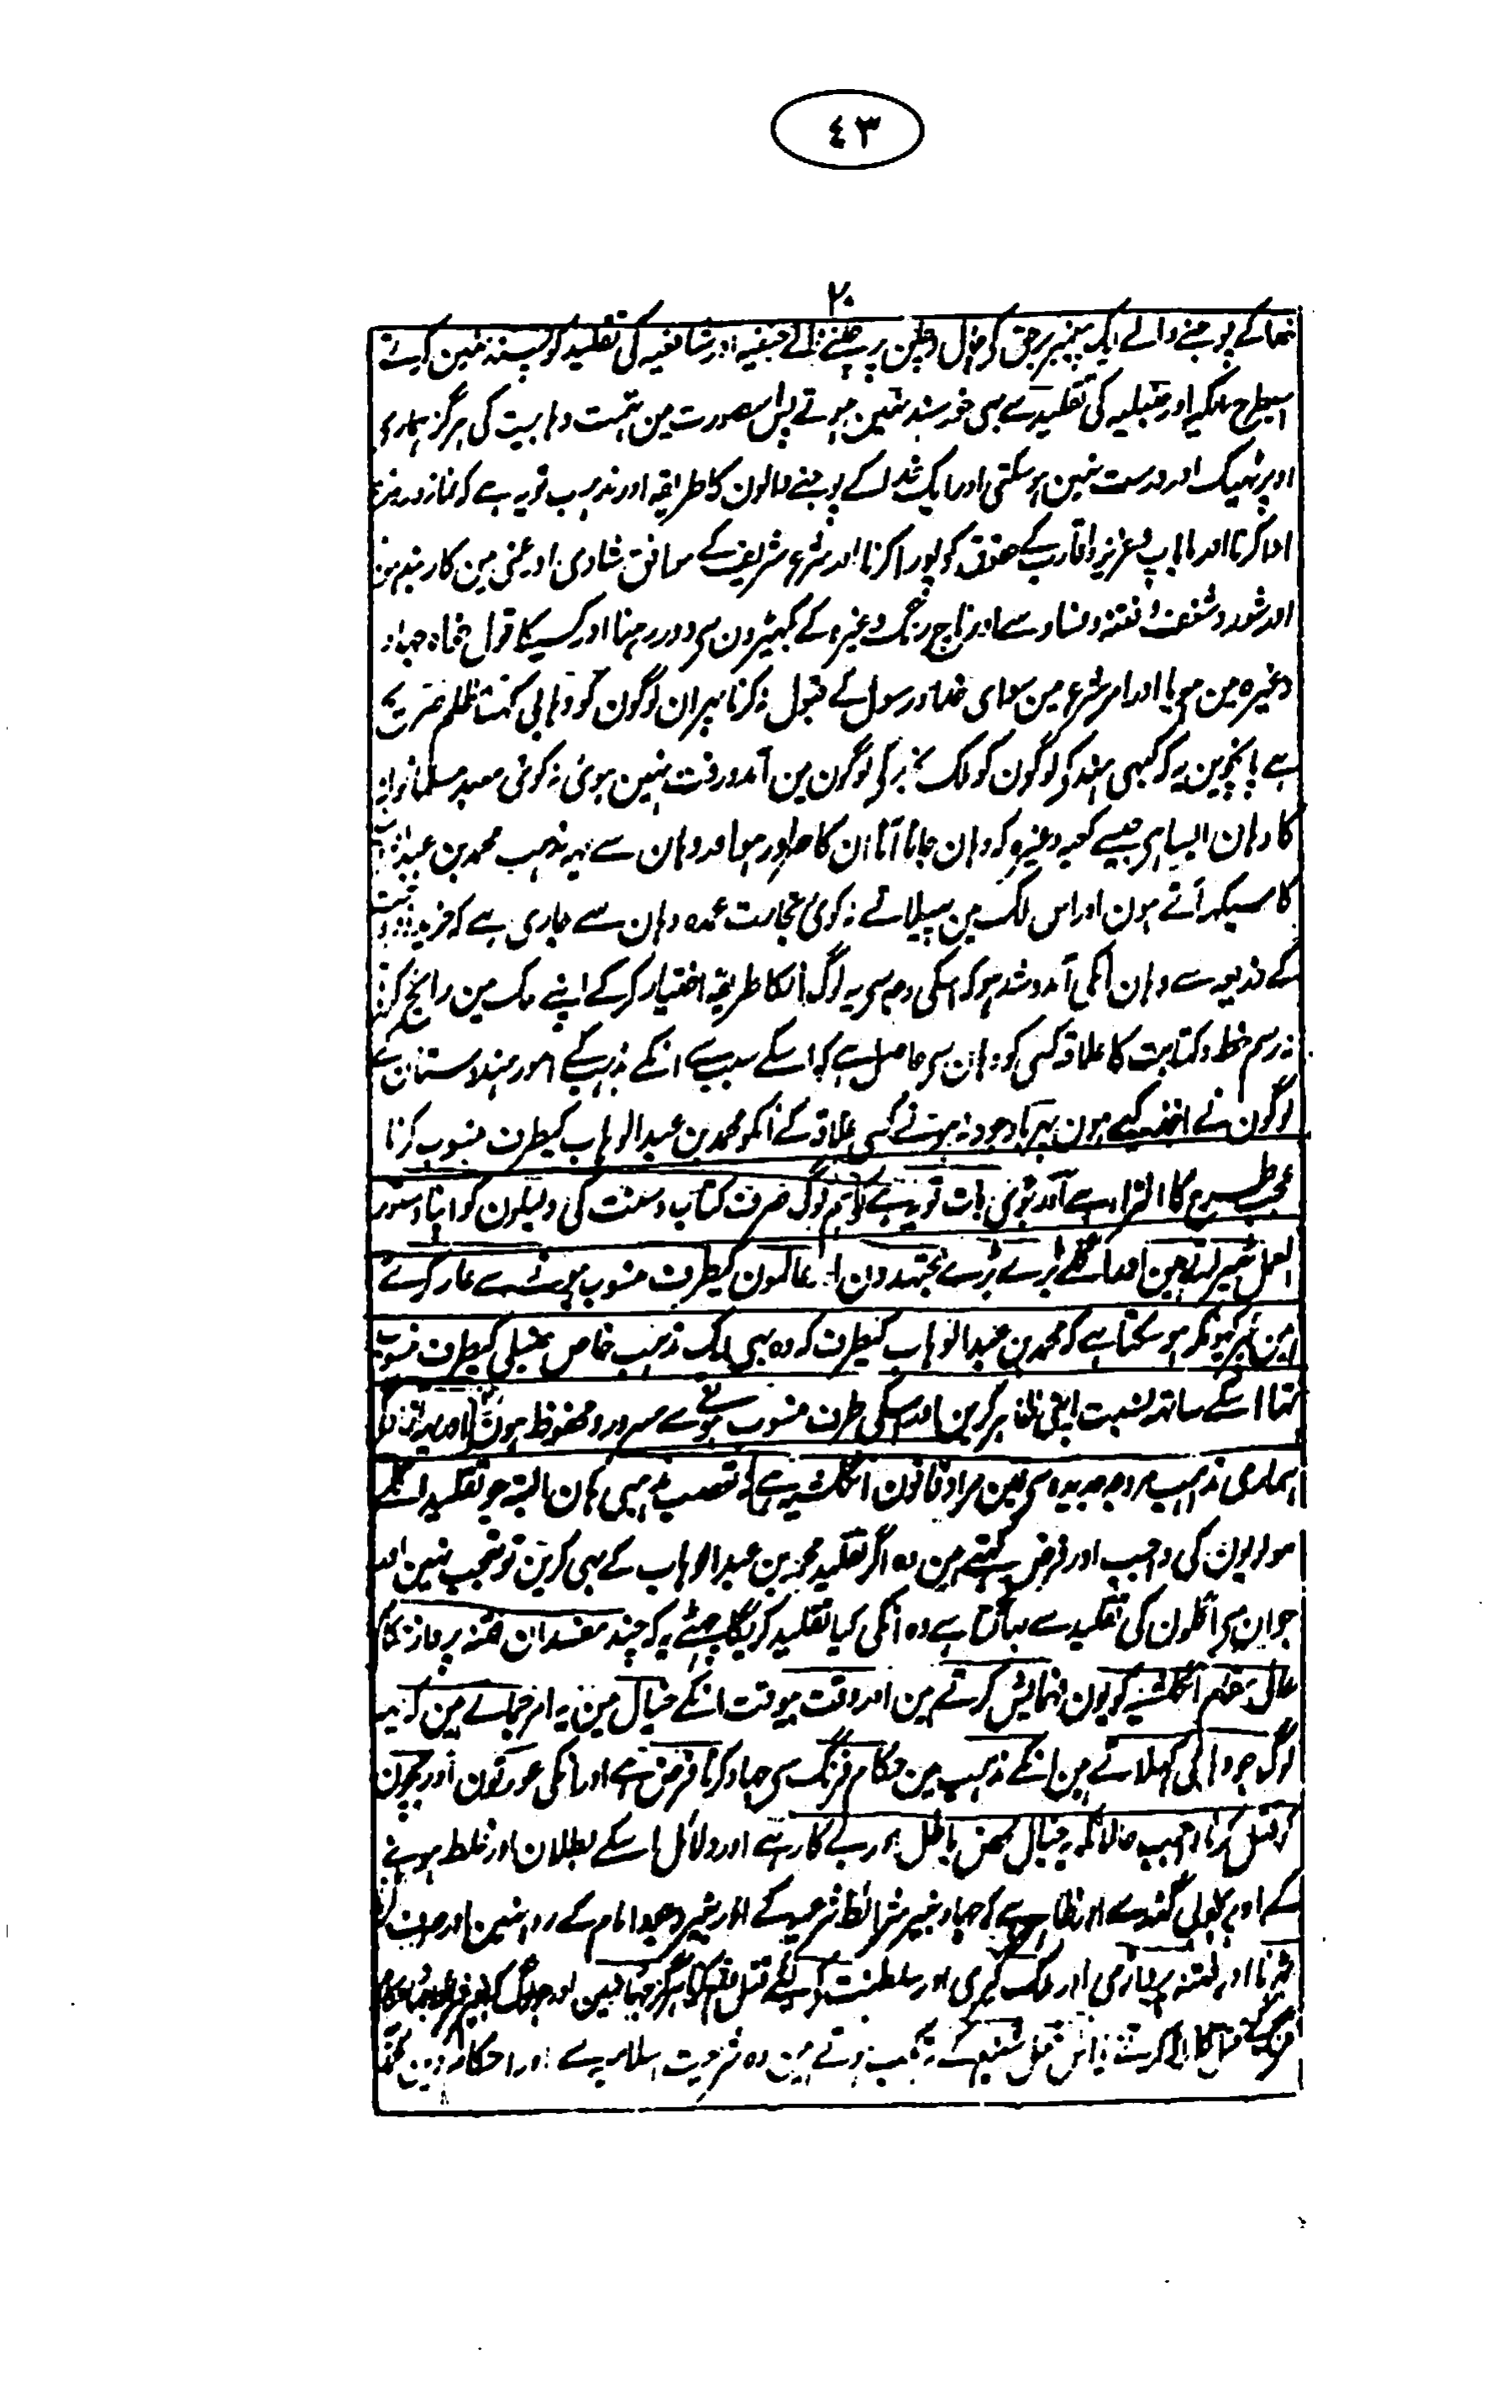 ٤٣
٢٠
خدا کے پوجنے والے ایک پیغمبر برحق کی چال وچلن پر چلنے والے حنفیہ اور شافعیہ کی تقلید کو پسند نہین کرتے
اسیطرح مالکیہ اور حنبلیہ کی تقلید سے بہی خورسند نہین ہوتے پس اسصورت مین تہمت وہابیت کی ہرگز ہماری
اوپر ٹہیک اور درست نہین ہوسکتی اور ایک خدا کے پوجنے والون کا طریقہ اور مذہب تو یہ ہے کہ نماز روزہ
ادا کرنا اور ماں باپ عزیز واقارب کے حقوق کو پورا کرنا اور شرع شریف کے موافق شادی اور غمی مین کاربند
اور شور وشغف فتنہ وفساد سے اور ناچ رنگ وغیرہ کے بکہیڑون سے دور رہنا اور کسیکا قول خواہ جہاد
وغیرہ مین ہو یا اور امر شرع مین سوای خدا ورسول کے قبول نہ کرنا پہر ان لوگون کو وہابی کہنا ظلم صریح
ہے پانچوین یہ کہ کبہی ہند کی لوگون کو ملک نجد کی لوگون مین آمدورفت نہین ہوئی نہ کوئی معبد مسلمانون
کا وہان ایسا ہی جیسے کعبہ وغیرہ کہ وہان جانا آنا ان کا ہوا اور وہان سے یہ مذہب محمد بن عبد
کا سیکہہ آئے ہون اور اس ملک مین پہیلائے نہ کوئی تجارت عمدہ وہان سے جاری ہے کہ خرید
کے ذریعہ سے وہان انکی آمد وشد ہو کہ اسکی وجہ سے یہ لوگ انکا طریقہ اختیار کرکے اپنے ملک مین رائج کرتے
نہ رسم خط وکتابت کا علاقہ کسی کو وہان سے حاصل ہے کہ اسکے سبب سے انکے مذہب کے امور ہندوستان کے
لوگون نے اخذ کیے ہون پہر باوجود نہونے کسی علاقہ کے انکو محمد بن عبد الوہاب کیطرف منسوب کرنا
عجب طرح کا الزام ہے اور بڑی بات تو یہ ہے کہ ہم لوگ صرف کتاب وسنت کی دلیلون کو اپنا دستور
العمل ٹہیراتے ہین اور اگلے بڑے بڑے مجتہدون اور عالمون کیطرف منسوب ہونے سے عار کرتے
ہین پہر کیونکر ہو سکتا ہے کہ محمد بن عبد الوہاب کیطرف کہ وہ بہی ایک مذہب خاص حنبلی کیطرف منسوب
تہا اسکے ساتہہ نسبت اپنی ظاہر کرین اور اسکی طرف منسوب ہونے سے مسرور ومحفوظ ہون اور یہ
ہماری مذہب مروجہ جدیدہ سے عین مراد قانون انگلشیہ ہے نہ تعصب مذہبی ہان البتہ جو تقلید اگلے
مولویون کی واجب اور فرض کہتے ہین وہ اگر تقلید محمد بن عبد الوہاب کے بہی کرین تو تعجب نہین اور
جو ان سے اگلون کی تقلید سے بہاگتا ہے وہ انکی کیا تقلید کریگا چہٹے یہ کہ چند مفسدان فتنہ پرداز حکام
عالی مقام انگلشیہ کو یون نمایش کرتے ہین اور وقت بیوقت انکے خیال مین یہ امر جماتے ہین کہ یہ
لوگ جو وہابی کہلاتے ہین انکے مذہب مین حکام فرنگ سے جہاد کرنا فرض ہے اور انکی عورتون اور بچون
کو قتل کرنا واجب حالانکہ یہ خیال محض باطل اور بے کار ہے اور دلائل اسکے بطلان اور غلط ہونے
کے اوپر کہولی گئے اور ظاہر ہے کہ جہاد بغیر شرائط شرعیہ کے اور بغیر وجود امام کے روا نہین اور صرف
اور فتنہ پردازی اور ملک گیری اور سلطنت کے لئے قتل ہرگز جہاد نہین اور جو لوگ
فرنگ کے کرتے ہین اس فعل شنیع کے مرتکب ہوتے ہین وہ شریعت اسلامیہ سے اور احکام دین